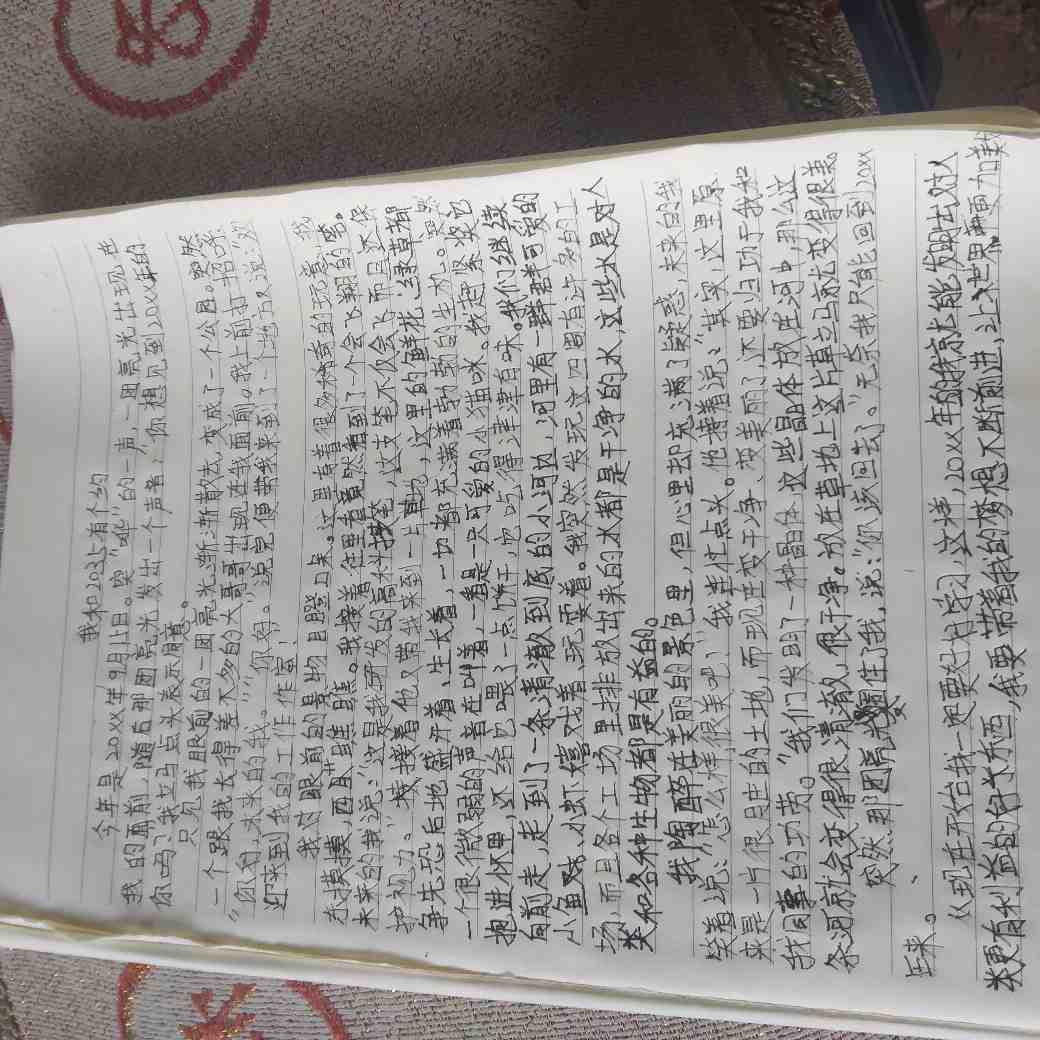 我和2035有个约
今年是20XX年9月1日。突"啪"的一声,一团亮光出现在
我的面前,随后那团亮光发出一个声音:"你想见到20XX年的
你吗?"我立马点头表示同意。
只见我眼前的一团亮光渐渐散去,变成了一个公园。突然
一个跟我长得差不多的大哥哥出现在我面前。我上前打招呼:
"你好,未来的我。""你好。"说完便带我来到了一个地方又说:"欢
迎来到我的工作室!"
我被眼前的景物目瞪口呆。这里有着很多稀奇的玩意,我
东摸摸西瞧瞧。我接着往里看竟然看到了一个会飞翔的笔。
未来的我说:"这是我研发的高科技笔,这支笔不仅会飞而且还保
护视力。"接着他又带我来到一片草地,这里的鲜花、绿草都
争先恐后地盛开着、生长着,一切都充满着勃勃的生机。突然
一个很微弱的声音在叫着一看是一只可爱的小猫咪。我赶紧把它
抱进怀里,还给它喂了一点饼干,它吃得津津有味。我们继续
向前走,走到了一条清澈到底的小河边,河里有一群群可爱的
小鱼、小虾嬉戏着,玩耍着。我突然发现这四周有许多的工
场,而且各个工场里排放出来的水都是干净的水,这些水是对人
类和各种生物都是有益的。
我陶醉在美丽的景色里,但心里却充满了疑惑,未来的我
笑着说:"怎么样很美吧!"我连忙点头。他接着说:"其实,这里原
来是一片很脏的土地,而现在变干净、变美丽了,还要归功于我和
我同事的功劳。""我们发明了一种晶体,这些晶体放在河中,那么这
条河就会变得很清澈、很干净。放在草地上这片草立马就变得很美。
突然那团亮光罩住了我,说:"你该回去了。"无奈我只能回到20XX
年来。
从现在开始我一定要好好学习,这样,20XX年的我才能发明出对人
类更有利益的好东西,我要带着我的梦想不断前进,让世界更加美好